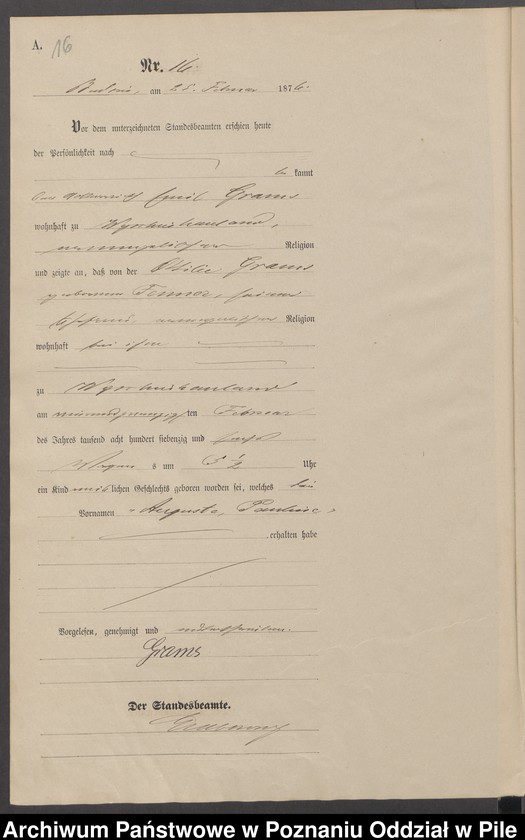 A. 16
Nr. 16.
am 25. Februar 1876.
Vor dem unterzeichneten Standesbeamten erschien heute
der Persönlichkeit nach
be kannt
der Emil Grams
wohnhaft zu
evangelischer Religion
und zeigte an, daß von der Ottilie Grams
geborenen seiner
Ehefrau, evangelischer Religion
wohnhaft bei ihm
zu
am ten Februar
des Jahres tausend acht hundert siebenzig und sechs
s um 5 1/2 Uhr
ein Kind weiblichen Geschlechts geboren worden sei, welches die
Vornamen Auguste, Pauline
erhalten habe
Vorgelesen, genehmigt und unterschrieben.
Grams
Der Standesbeamte.
Archiwum Państwowe w Poznaniu Oddział w Pile